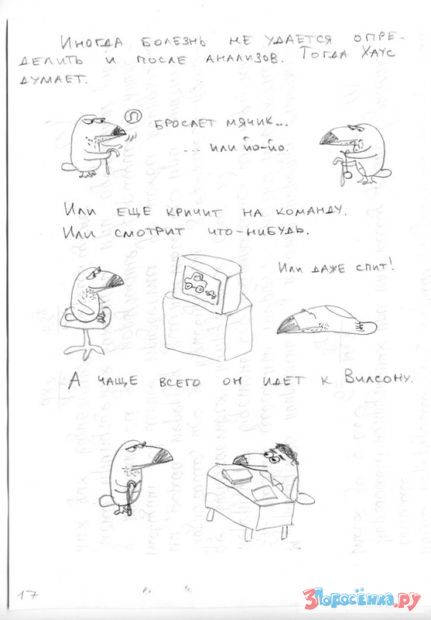 Иногда болезнь не удается опре-
делить и после анализов. Тогда Хаус
думает.
Бросает мячик...
... или йо-йо.
Или еще кричит на команду.
Или смотрит что-нибудь.
Или даже спит!
А чаще всего он идет к Вилсону.
17
3Поросёнка.ру